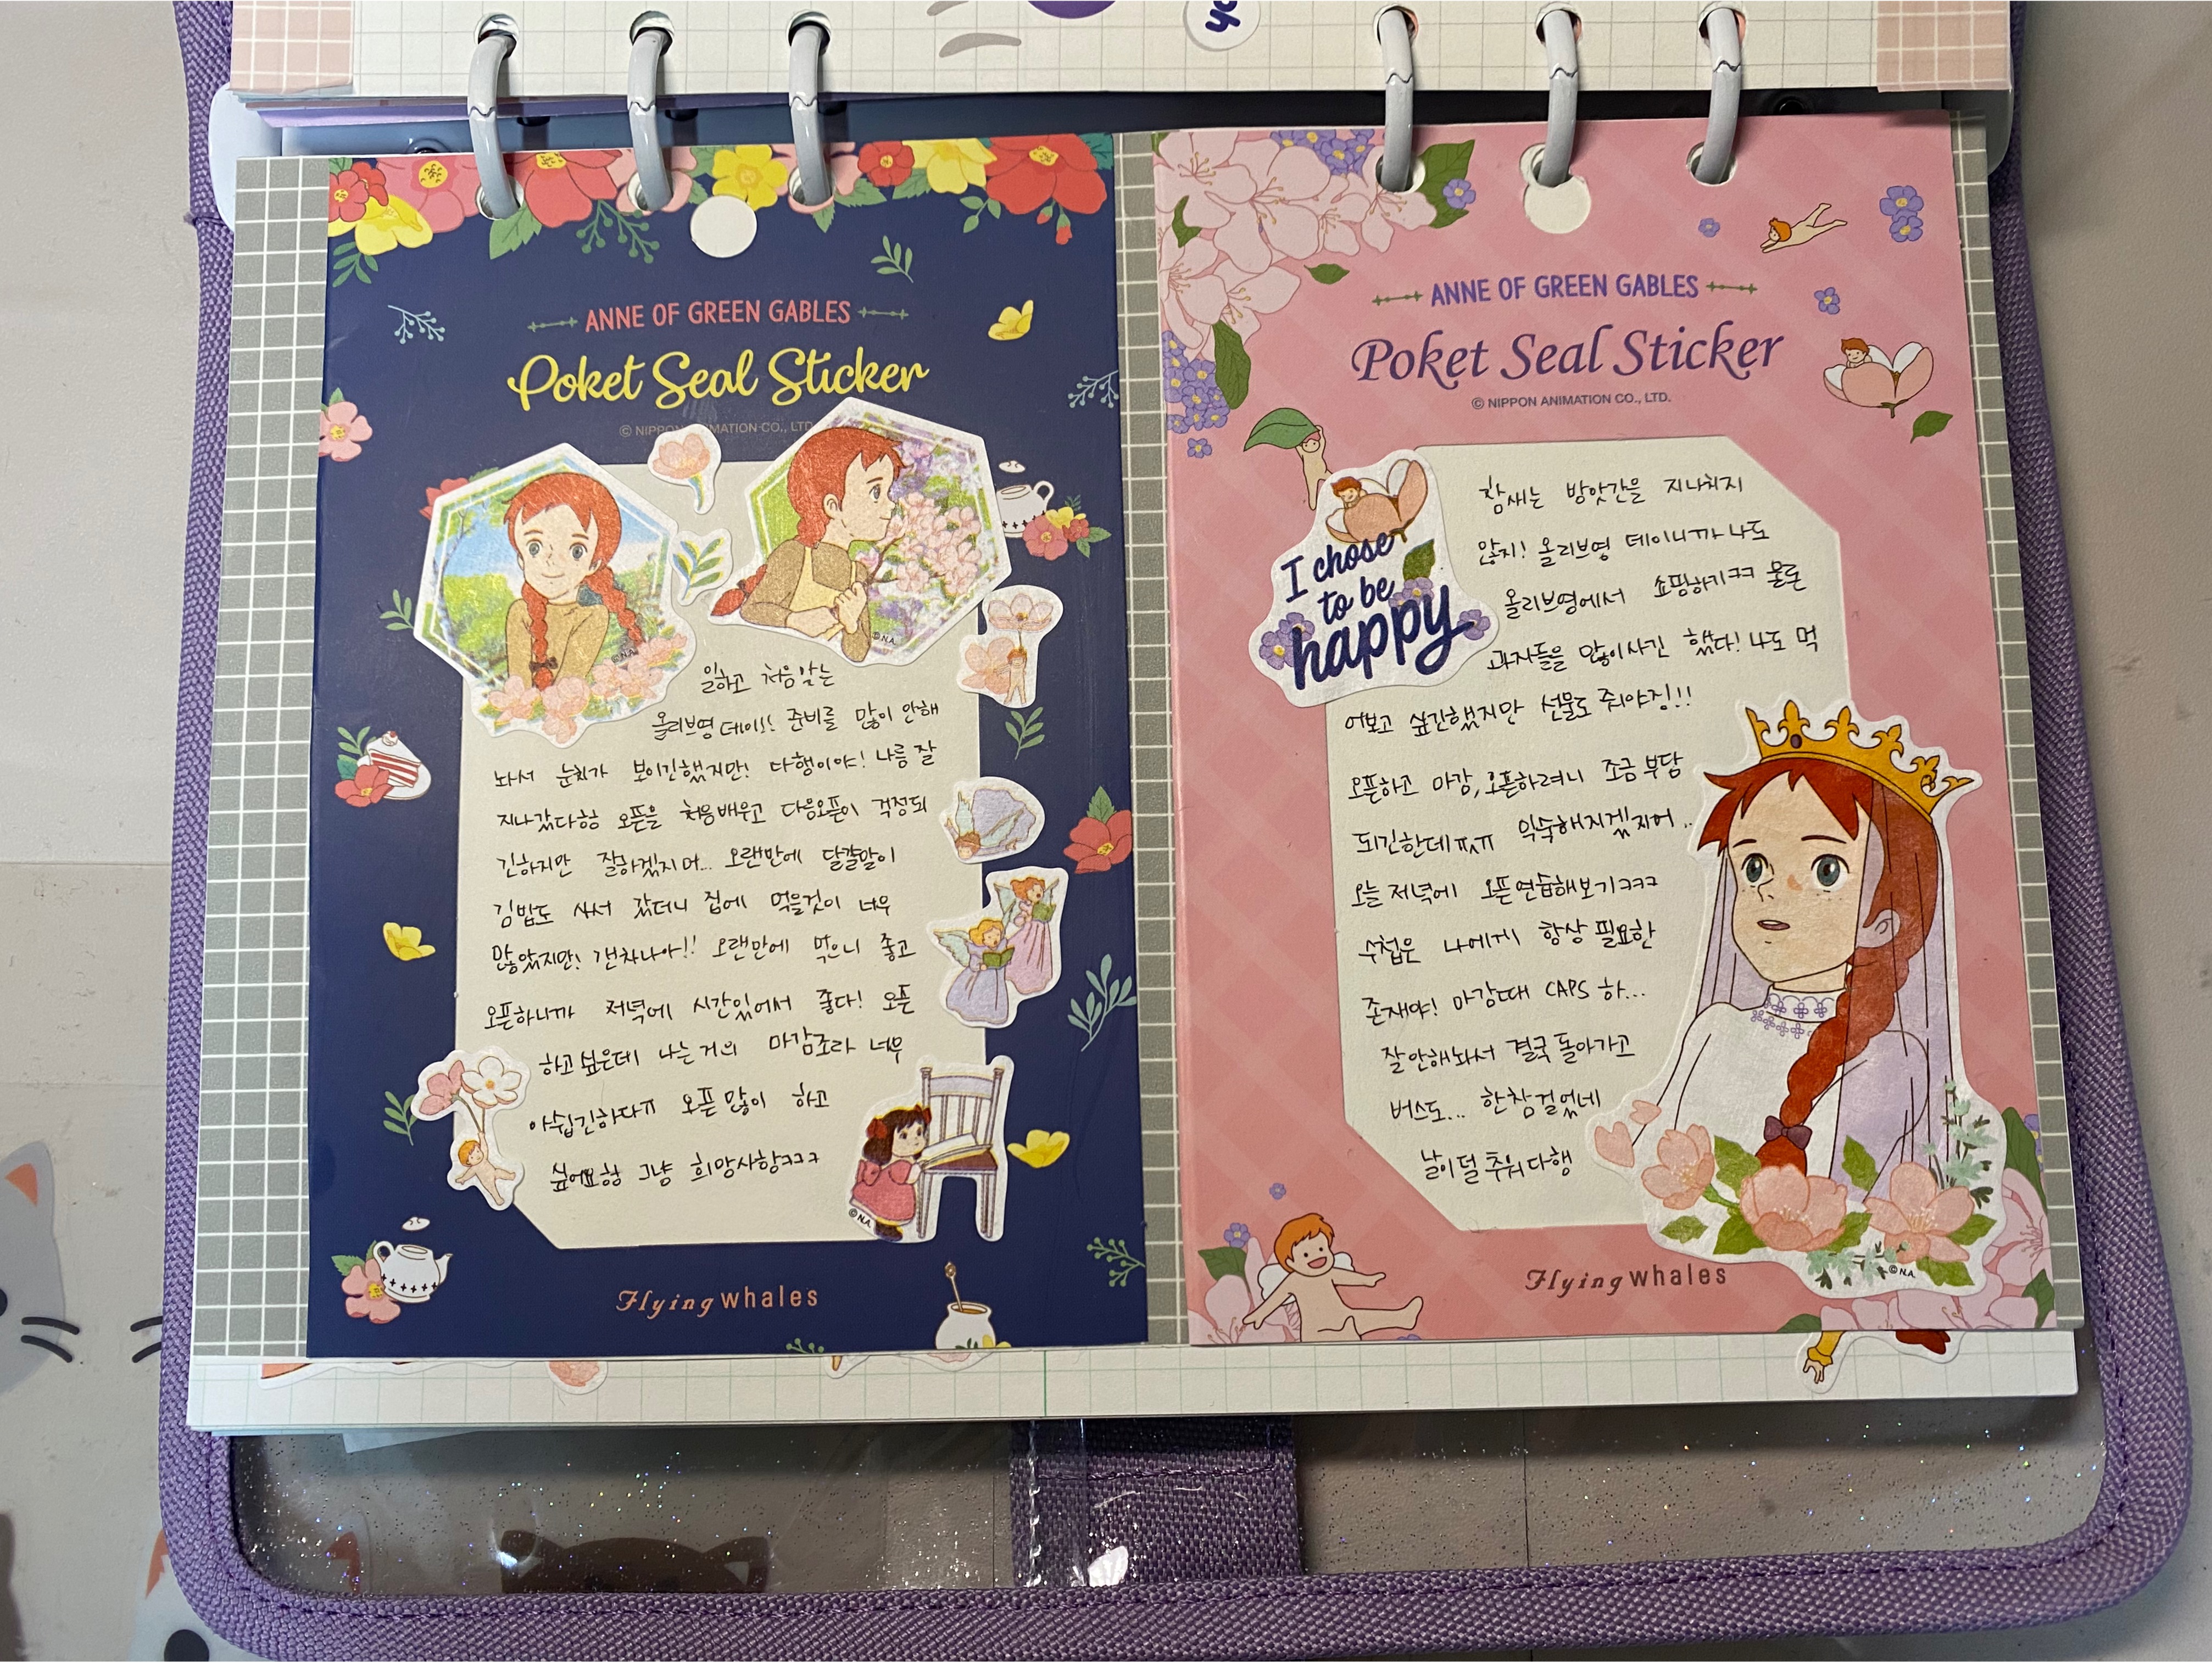 ANNE OF GREEN GABLES
Poket Seal Sticker
© NIPPON ANIMATION CO., LTD.
©N.A.
©N.A.
일하고 처음 맞는
올리브영 데이!! 준비를 많이 안해
놔서 눈치가 보이긴했지만! 다행이야! 나름 잘
지나갔다핳 오픈을 처음배우고 다음오픈이 걱정되
긴하지만 잘하겠지 머... 오랜만에 달걀말이
김밥도 사서 갔더니 집에 먹을것이 너무
많았지만! 갠차나아!! 오랜만에 먹으니 좋고
오픈하니까 저녁에 시간있어서 좋다! 오픈
하고싶은데 나는 거의 마감조라 너무
아쉽긴하다ㅠ 오픈 많이 하고
싶어요핳 그냥 희망사항ㅋㅋㅋ
©N.A.
Flying whales
ANNE OF GREEN GABLES
Poket Seal Sticker
© NIPPON ANIMATION CO., LTD.
I chose
to be
happy
참새는 방앗간을 지나치지
않지! 올리브영 데이니까 나도
올리브영에서 쇼핑하기ㅋㅋ 물론
과자들을 많이사긴 했다! 나도 먹
어보고 싶긴했지만 선물도 줘야징!!
오픈하고 마감, 오픈하려니 조금 부담
되긴한데ㅠㅠ 익숙해지겠지어..
오늘 저녁에 오픈연습해보기ㅋㅋㅋ
수첩은 나에게 항상 필요한
존재야! 마감때 CAPS 하...
잘 안해놔서 결국 돌아가고
버스도... 한참 걸었네
날이 덜 추워 다행
©N.A.
Flying whales